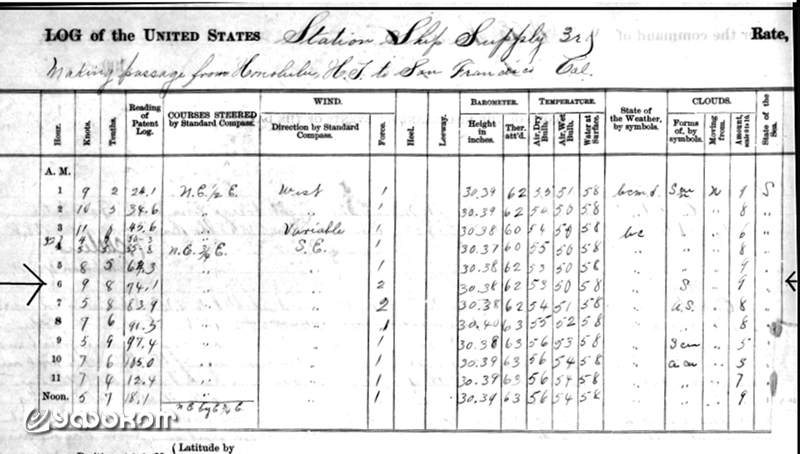 LOG of the UNITED STATES Station Ship Supply 3rd Rate,
Making passage from Honolulu, H.I. to San Francisco Cal.
WIND. BAROMETER. TEMPERATURE. CLOUDS.
Hour. Knots. Tenths. Reading of Patent Log. COURSES STEERED by Standard Compass. Direction by Standard Compass. Force. Heel. Leeway. Height in inches. Ther. att'd. Air, Dry Bulb. Air, Wet Bulb. Water at Surface. State of the Weather, by symbols. Forms of, by symbols. Moving from. Amount, scale 0 to 10. State of the Sea.
A. M.
1 9 2 24.1 N.E. ½ E. West 1 30.39 62 53 51 58 N 9 S
2 10 5 34.6 " " 1 30.39 62 54 50 58 " " 8 "
3 11 45.6 Variable 1 30.38 60 54 50 58 bc " " 6 "
4 N.E. ¾ E. S.E. 1 30.37 60 55 50 58 " " 8 "
5 8 5 " " 1 30.38 62 53 50 58 " " 9 "
6 9 8 74.1 " " 2 30.38 62 53 50 58 " S " 9 "
7 5 8 83.9 " " 2 30.38 62 54 51 58 " "
8 7 6 91.5 " " 1 30.40 63 55 52 58 " " 8 "
9 5 9 97.4 " " 1 30.38 63 56 53 58 " " 5 "
10 7 6 " " 1 30.39 63 56 54 58 " "
11 7 4 12.4 " " 1 30.39 63 56 54 58 " " 7
Noon. 5 7 18.1 " 1 30.39 63 56 54 58 " " 9
УФОКОМ
(Latitude by